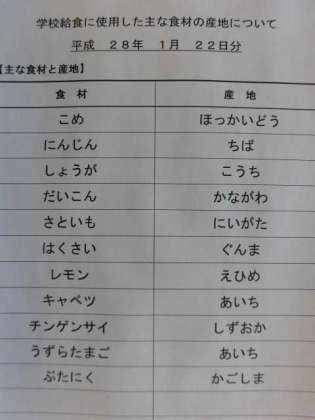 学校給食に使用した主な食材の産地について
平成 28年 1月 22日分
【主な食材と産地】
食 材 産 地
こめ ほっかいどう
にんじん ちば
しょうが こうち
だいこん かながわ
さといも にいがた
はくさい ぐんま
レモン えひめ
キャベツ あいち
チンゲンサイ しずおか
うずらたまご あいち
ぶたにく かごしま